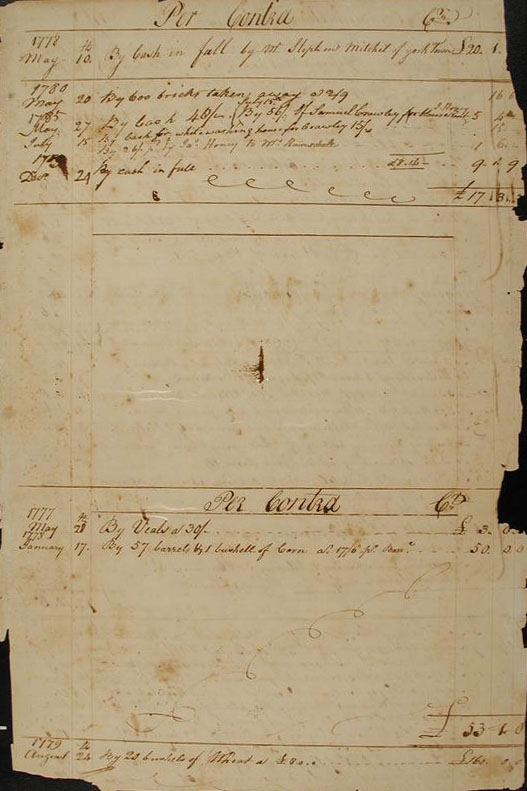 Per Contra Cr.
1778
May 10. By Cash in full by Mr. Stephen Mitchel of york Town £20. 1.
1780
May 20 By 600 bricks taken away at 2/9 16 6
1785 July 15th
May 27 By Cash 48/ By 56/ of Samuel Crawley for House 5 4
July 15 By Cash for white washing house for Crawley 15/ 15
to Mr. 1 6
Decr. 24 By cash in full £8.14 9. 9
£17 8
Per Contra Cr.
1777
May 28 By Veals at 30/. £ 3. 0.
1778
January 17. By 57 barrels & 1 bushell of Corn at 17/6 pr. Barr. 50. 0 0
£ 53 1 0
1779
August 24 By 20 bushels of Wheat a £8 £160. 0 0